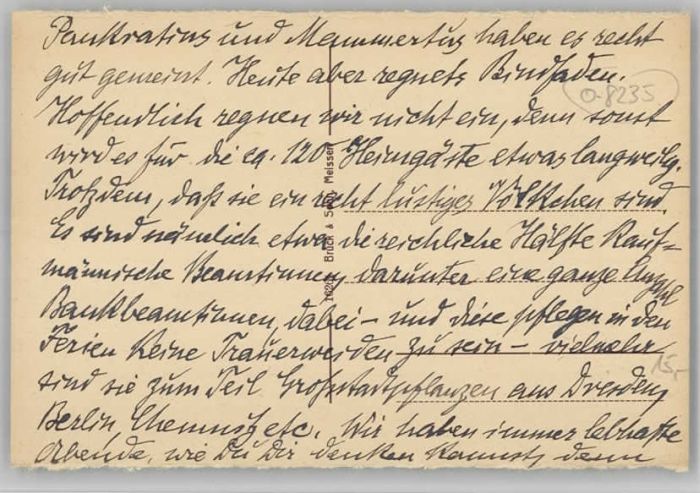 Pankratius und Mammertus haben es recht
gut gemeint. Heute aber regnets Bindfaden.
Hoffendlich regnen wir nicht ein, denn sonst
wird es für die ca. 120 Heimgäste etwas langweilig.
Trotzdem, daß sie ein recht lustiges Völkchen sind.
Es sind nämlich etwa die reichliche Hälfte Kauf-
männische Beamtinnen, darunter eine ganze Anzahl
Bankbeamtinnen, dabei – und diese pflegen in den
Ferien keine Trauerweiden zu sein – vielmehr
sind sie zum Teil Großstadtpflanzen aus Dresden,
Berlin, Chemnitz etc. Wir haben immer lebhafte
Abende, wie Du Dir denken kannst, denn
Brück & Sohn, Meissen
0-8235
15,-